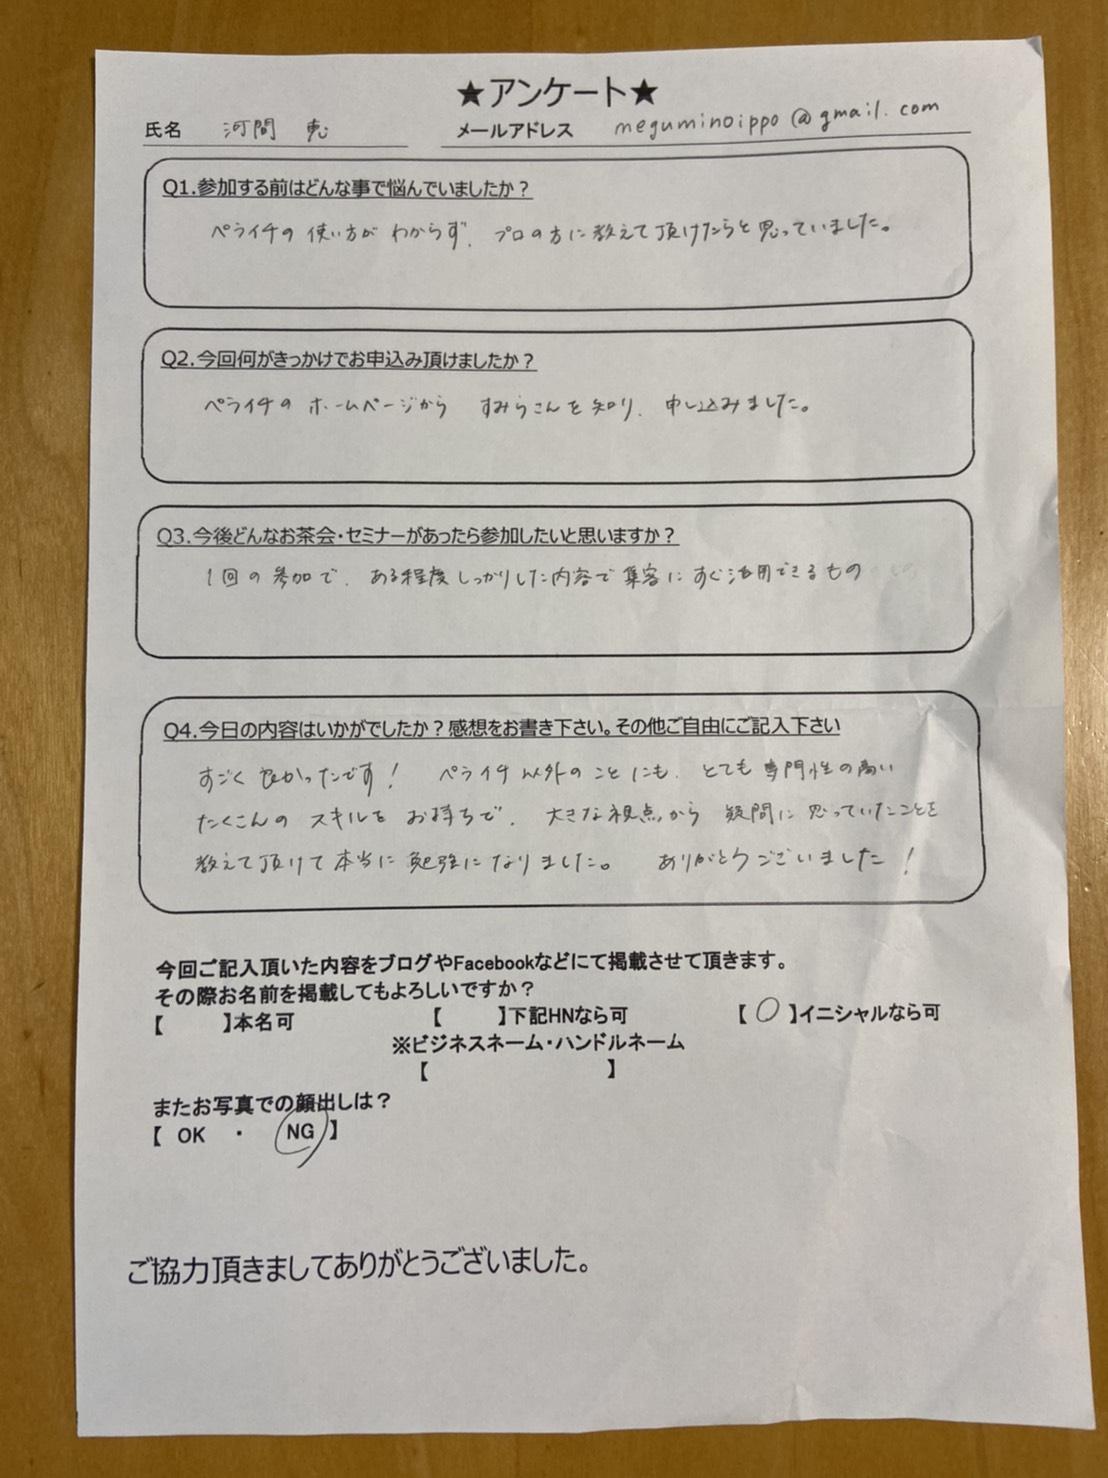 ★アンケート★
氏名 河間 恵 メールアドレス meguminoippo@gmail.com
Q1.参加する前はどんな事で悩んでいましたか？
ペライチの使い方がわからず、プロの方に教えて頂けたらと思っていました。
Q2.今回何がきっかけでお申込み頂けましたか？
ペライチのホームページから すみらさんを知り、申し込みました。
Q3.今後どんなお茶会・セミナーがあったら参加したいと思いますか？
1回の参加で、ある程度しっかりした内容で集客にすぐ活用できるもの
Q4.今日の内容はいかがでしたか？感想をお書き下さい。その他ご自由にご記入下さい
すごく良かったです！ ペライチ以外のことにも、とても専門性の高い
たくさんのスキルをお持ちで、大きな視点から疑問に思っていたことを
教えて頂けて本当に勉強になりました。 ありがとうございました！
今回ご記入頂いた内容をブログやFacebookなどにて掲載させて頂きます。
その際お名前を掲載してもよろしいですか？
【 】本名可 【 】下記HNなら可 【 〇 】イニシャルなら可
※ビジネスネーム・ハンドルネーム
【 】
またお写真での顔出しは？
【 OK ・ NG 】
ご協力頂きましてありがとうございました。